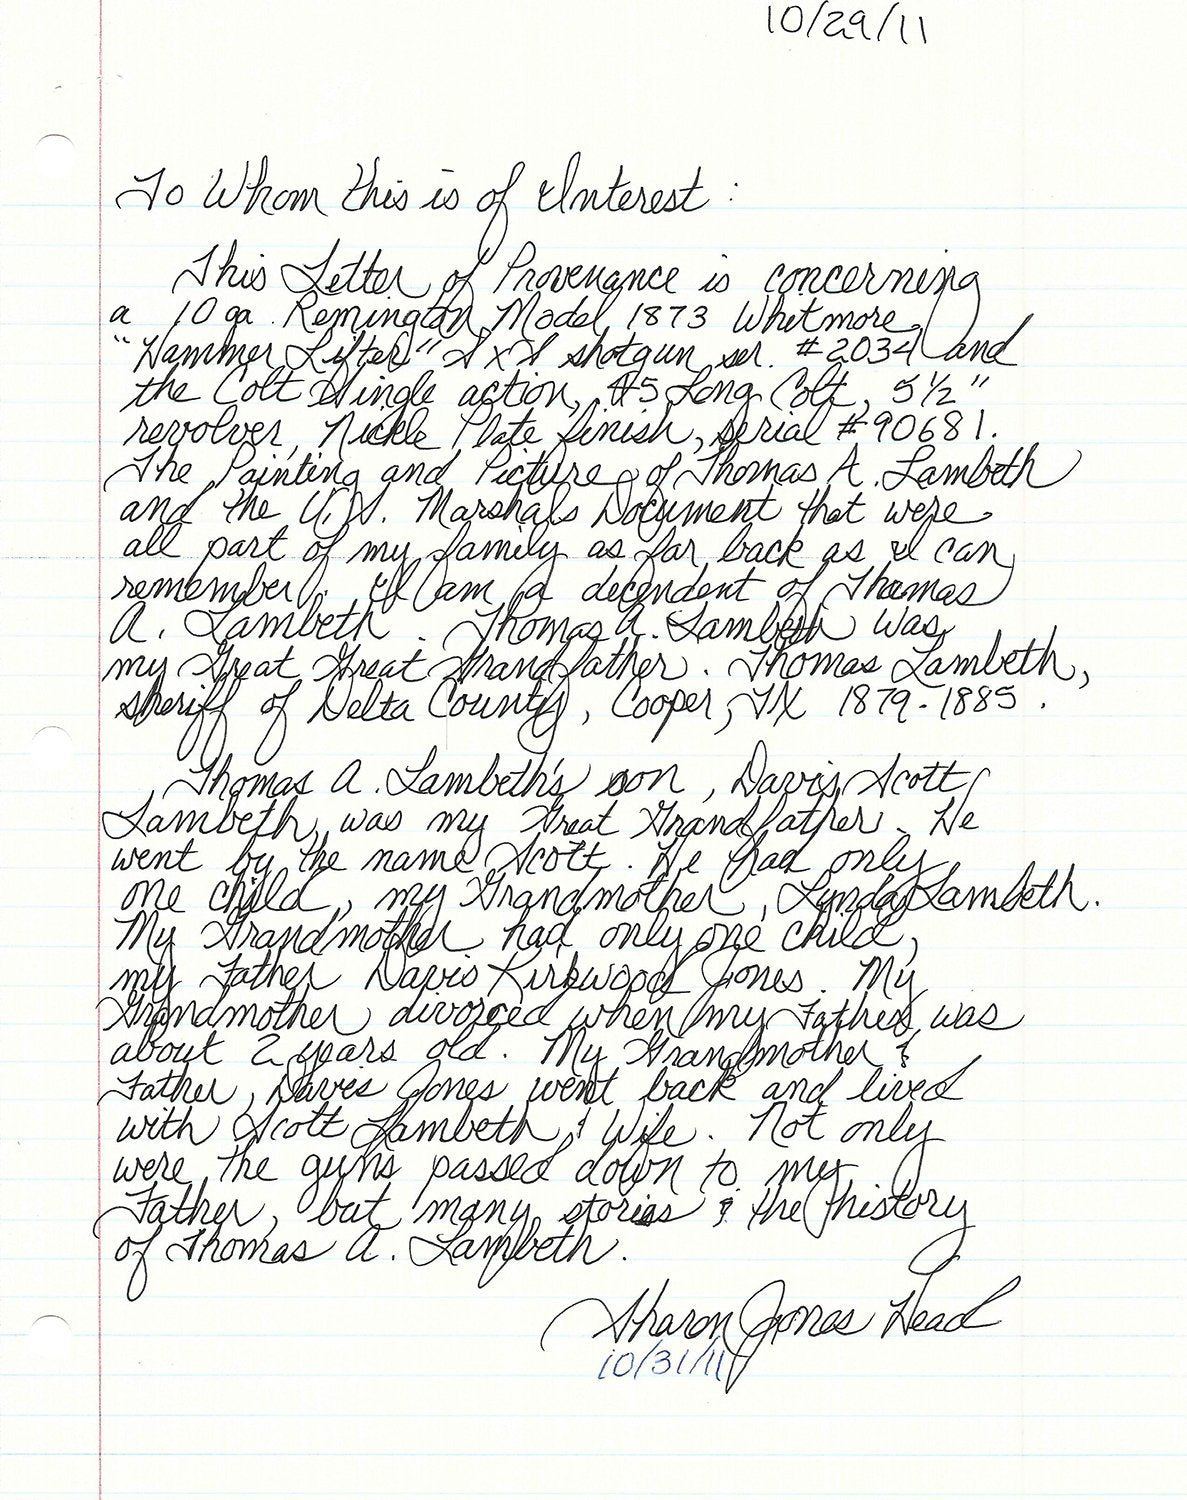 10/29/11
To Whom this is of Interest:
This Letter of Provenance is concerning
a 10 ga. Remington Model 1873 Whitmore
"Hammer Lifter" SxS shotgun ser. #2034 and
the Colt Single action, 45 Long Colt, 5 1/2"
revolver, Nickle Plate finish, serial #90681.
The Painting and Picture of Thomas A. Lambeth
and the U.S. Marshals Document that were
all part of my family as far back as I can
remember. I am a decendent of Thomas
A. Lambeth. Thomas A. Lambeth was
my Great Great Grandfather. Thomas Lambeth,
sheriff of Delta County, Cooper, TX 1879-1885.
Thomas A. Lambeth's son, Davis Scott
Lambeth, was my Great Grandfather. He
went by the name Scott. He had only
one child, my Grandmother, Lynda Lambeth.
My Grandmother had only one child,
my Father Davis Kirkwood Jones. My
Grandmother divorced when my Father was
about 2 years old. My Grandmother &
Father, Davis Jones went back and lived
with Scott Lambeth & Wife. Not only
were the guns passed down to my
Father, but many stories & the history
of Thomas A. Lambeth.
Sharon Jones Head
10/31/11